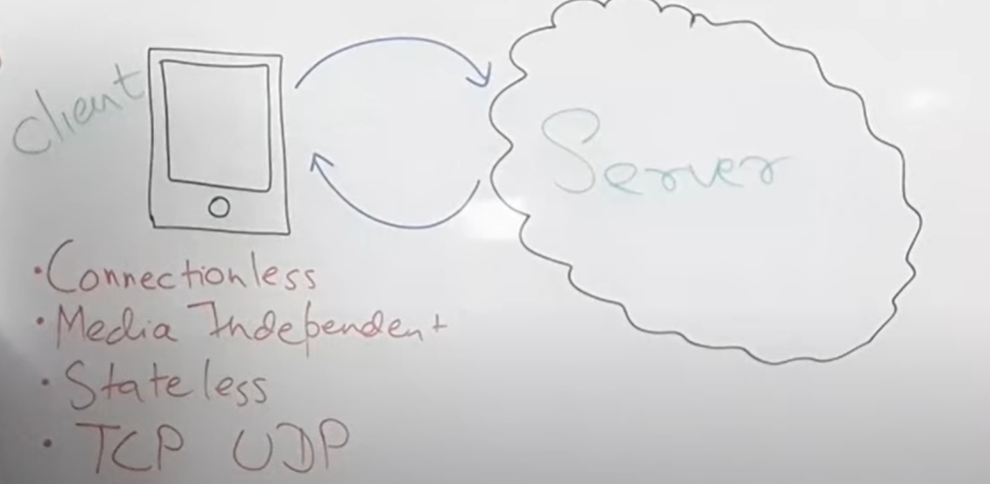 Client
Server
• Connectionless
• Media Independent
• Stateless
• TCP UDP